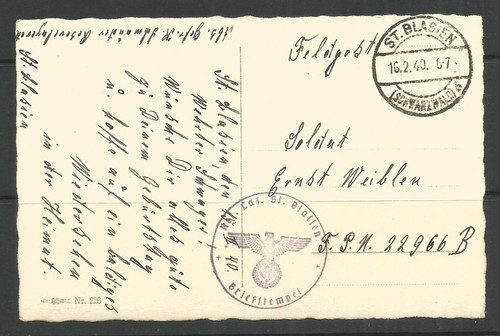 Abs. Gefr. K. Schmünder Reservelazarett
St. Blasien
St. Blasien, den
II. 40.
Werter Schwager!
Wünsche Dir alles gute
zu Deinem Geburtstag
u. hoffe auf ein baldiges
Wiedersehen
in der Heimat
Nr. 226
Feldpost
ST. BLASIEN
16.2.40. 6-7
(SCHWARZWALD)
Soldat
Ernst Weiblen
F.P.N. 22966 B
Res. Laz. St. Blasien
Briefstempel